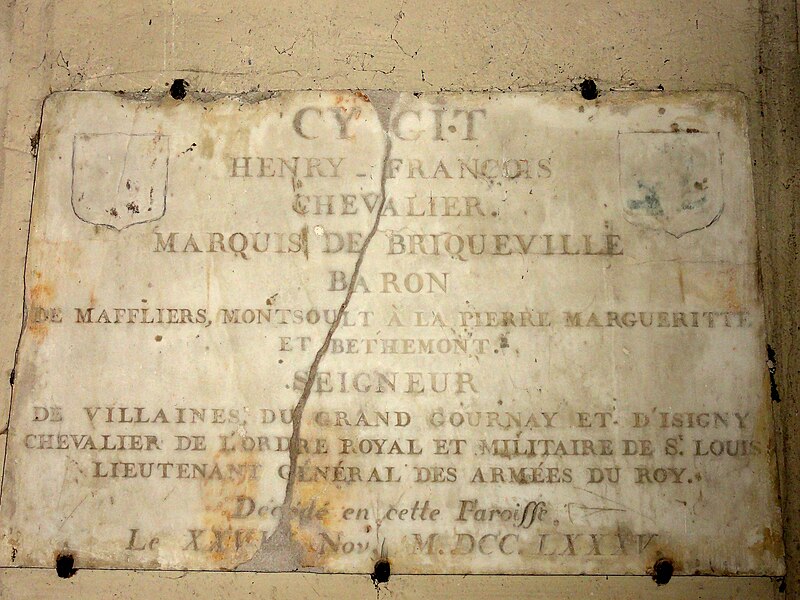 CY GIT
HENRY - FRANÇOIS
CHEVALIER.
MARQUIS DE BRIQUEVILLE
BARON
DE MAFFLIERS, MONTSOULT A LA PIERRE MARGUERITTE
ET BETHEMONT.
SEIGNEUR
DE VILLAINES, DU GRAND GOURNAY ET D'ISIGNY
CHEVALIER DE L'ORDRE ROYAL ET MILITAIRE DE St. LOUIS
LIEUTENANT GÉNÉRAL DES ARMÉES DU ROY.
Décédé en cette Paroisse,
Le Nov. M.DCC.LXXXV